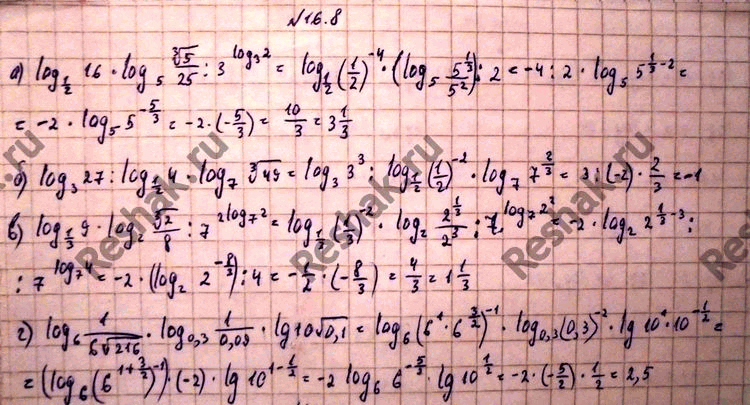 №16.8
а) log_{1/2} 16 · log_5 ∛5/25 : 3^{log_3 2} = log_{1/2} (1/2)^{-4} · (log_5 5^{1/3}/5^2) : 2 = -4 : 2 · log_5 5^{1/3-2} =
= -2 · log_5 5^{-5/3} = -2 · (-5/3) = 10/3 = 3 1/3
б) log_3 27 : log_{1/2} 4 · log_7 ∛49 = log_3 3^3 : log_{1/2} (1/2)^{-2} · log_7 7^{2/3} = 3 : (-2) · 2/3 = -1
в) log_{1/3} 9 · log_2 ∛2/8 : 7^{2log_7 2} = log_{1/3} (1/3)^{-2} · log_2 2^{1/3}/2^3 : 7^{log_7 2^2} = -2 · log_2 2^{1/3-3} :
: 7^{log_7 4} = -2 · (log_2 2^{-8/3}) : 4 = -1/2 · (-8/3) = 4/3 = 1 1/3
г) log_6 1/(6√216) · log_{0,3} 1/0,09 · lg 10√0,1 = log_6 (6^1 · 6^{3/2})^{-1} · log_{0,3} (0,3)^{-2} · lg 10^1 · 10^{-1/2} =
= (log_6 (6^{1+3/2})^{-1}) · (-2) · lg 10^{1-1/2} = -2 log_6 6^{-5/2} · lg 10^{1/2} = -2 · (-5/2) · 1/2 = 2,5
Reshak.ru
Reshak.ru
Reshak.ru
Reshak.ru